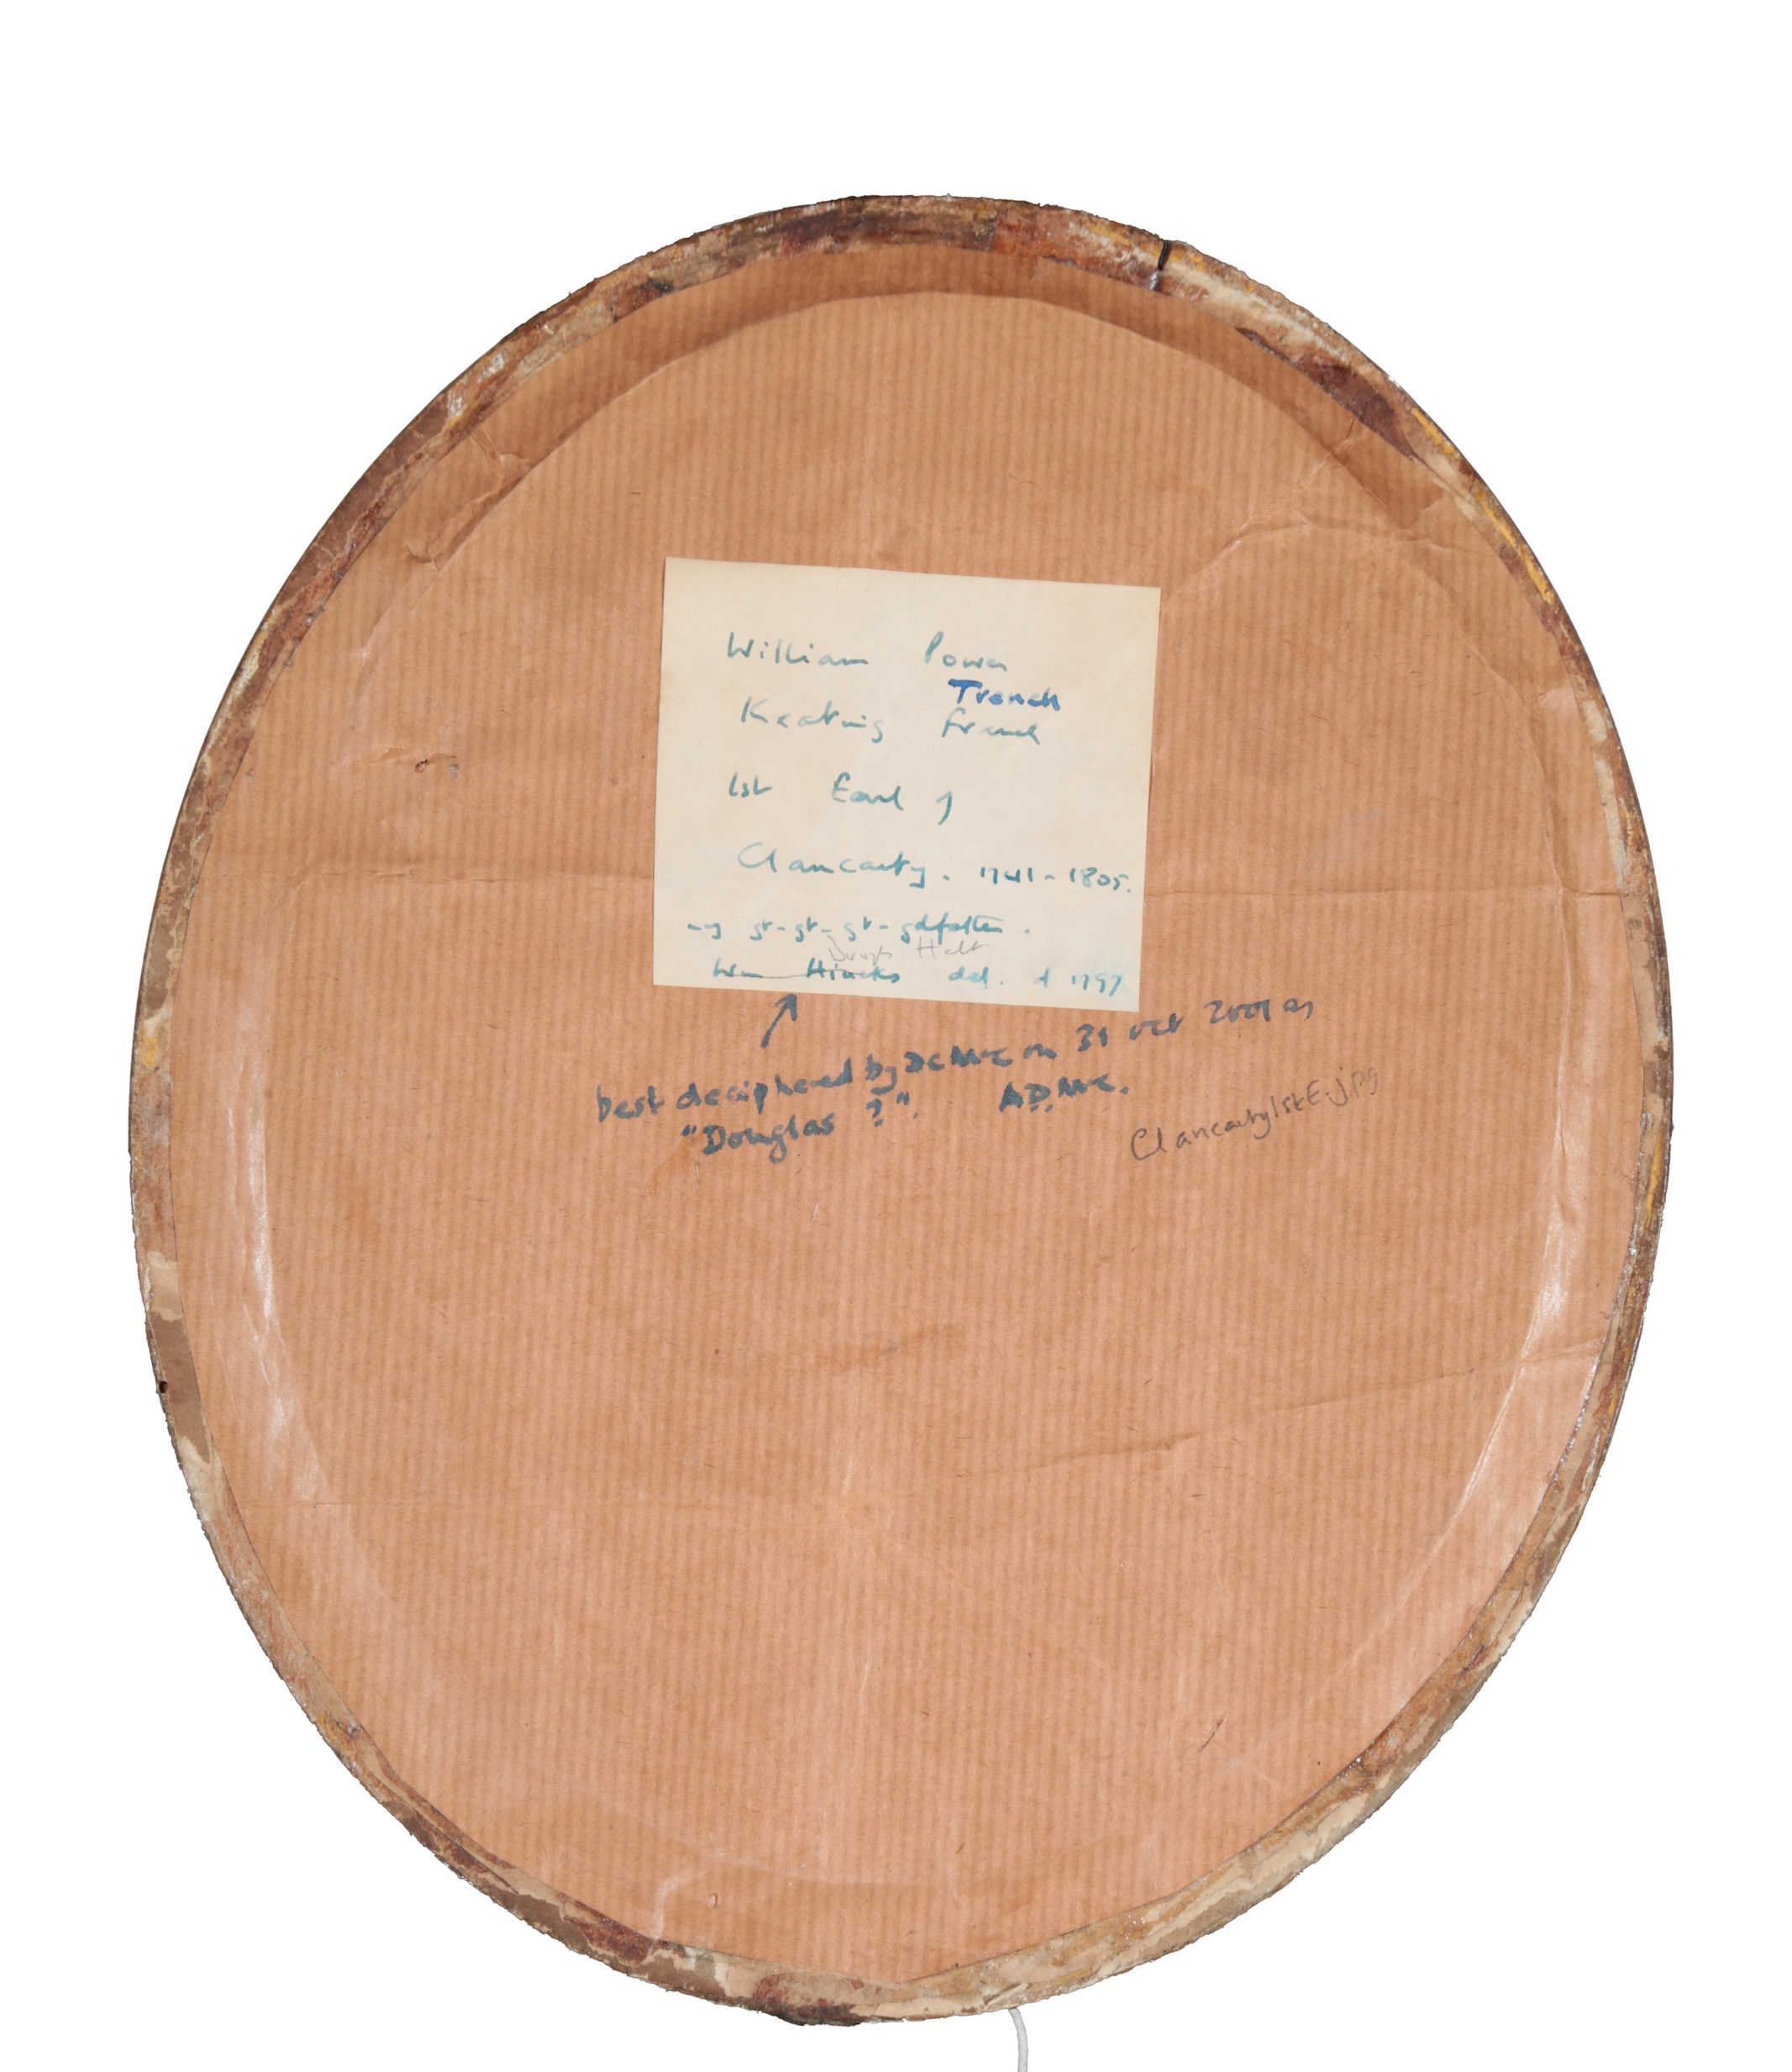 William Power
Trench
Keating French
1st Earl of
Clancarty. 1741-1805.
my gt-gt-gt-gdfather.
Holt
Wm Hincks del. d 1797
best deciphered by DCMcC on 31 Oct 2001 as
"Douglas ?". ADMcC.
Clancarty1stE.jpg